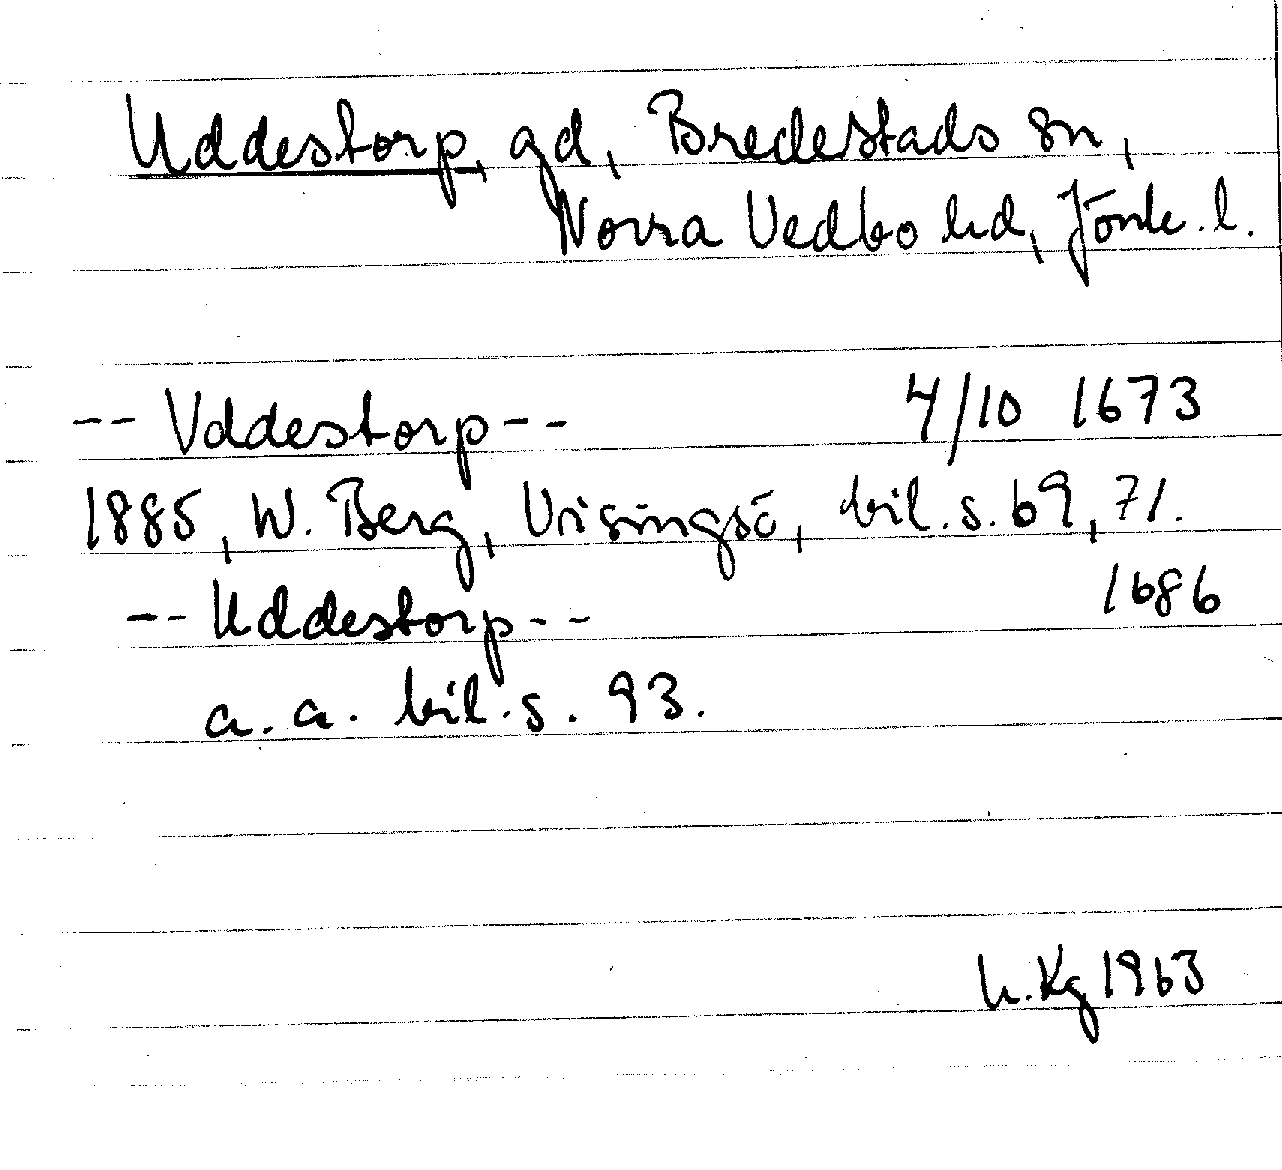 Uddestorp, gd, Bredestads sn,
Norra Vedbo hd, Jönk. l.
-- Vddestorp -- 4/10 1673
1885, W. Berg, Visingsö, bil. s. 69, 71.
-- Uddestorp -- 1686
a. a. bil. s. 93.
Kg 1963